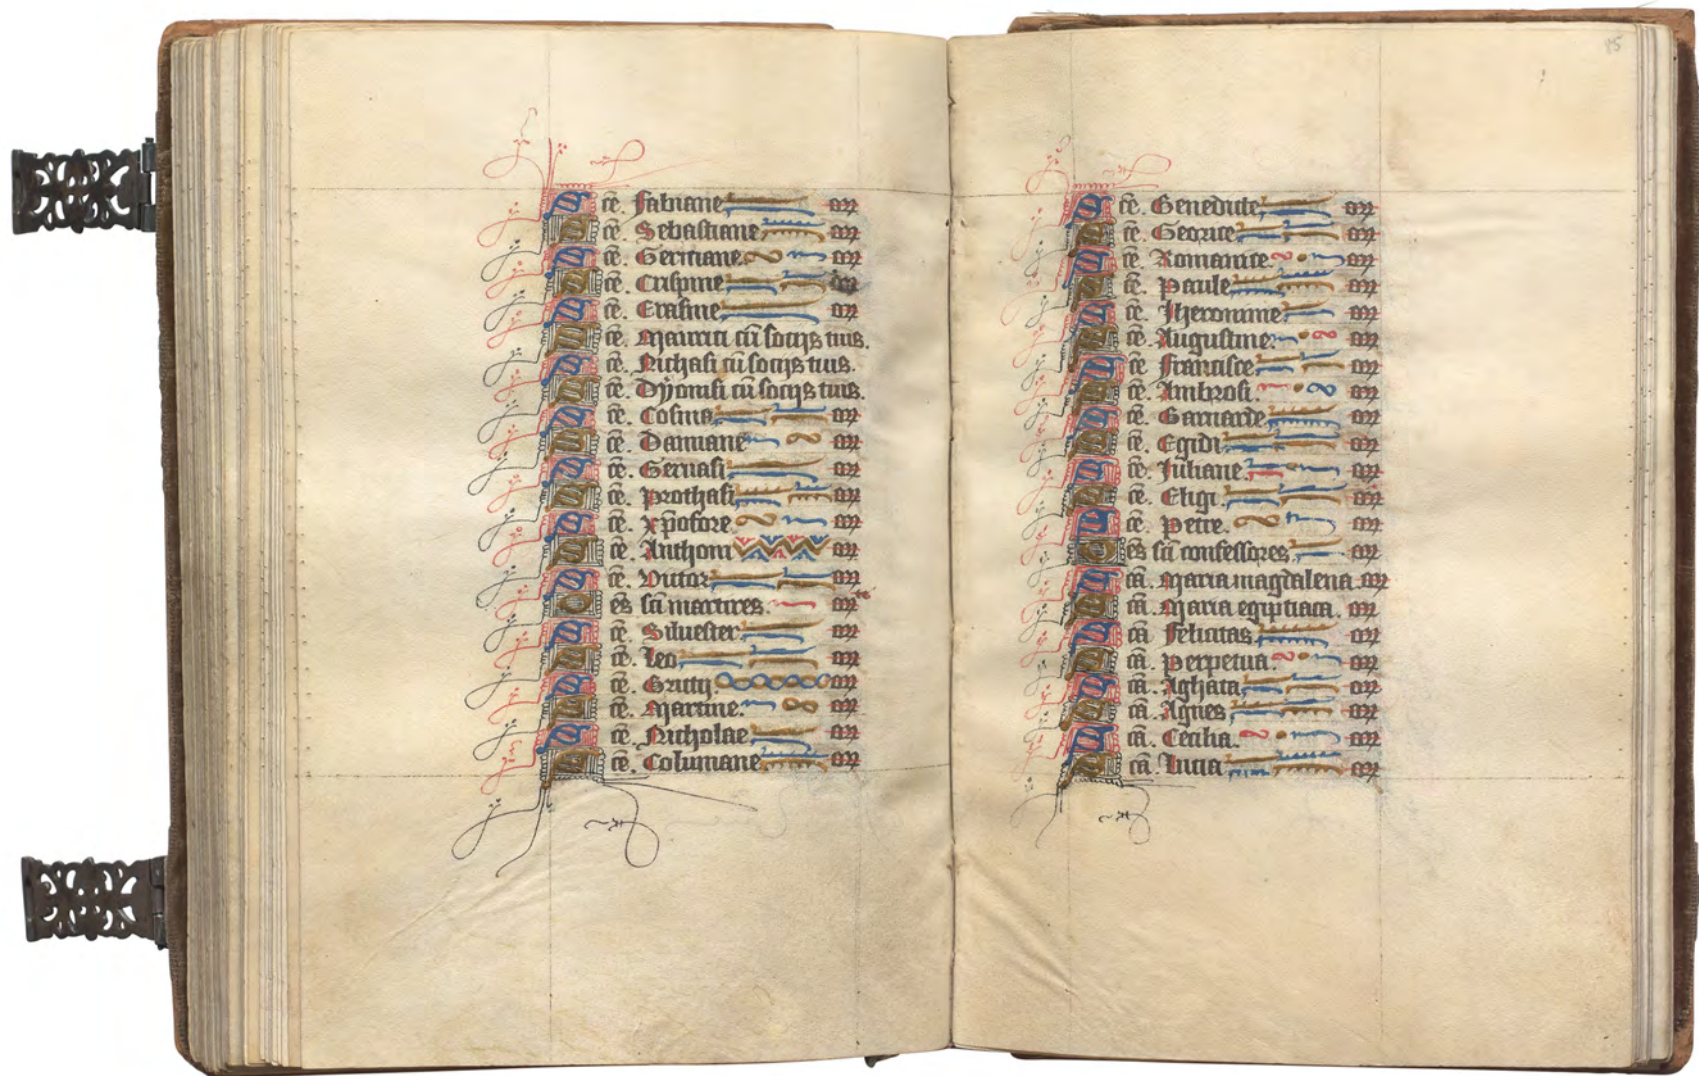 Sc̄e. Fabiane or̄
Sc̄e. Sebastiane or̄
Sc̄e. Germane or̄
Sc̄e. Crispine or̄
Sc̄e. Erasme or̄
Sc̄e. Mauriti cū socijs tuis.
Sc̄e. Nichasi cū socijs tuis.
Sc̄e. Dyonisi cū socijs tuis.
Sc̄e. Cosma or̄
Sc̄e. Damiane or̄
Sc̄e. Geruasi or̄
Sc̄e. Prothasi or̄
Sc̄e. Xp̄ofore or̄
Sc̄e. Anthoni or̄
Sc̄e. Victor or̄
Oēs sc̄i martires. or̄
Sc̄e. Siluester or̄
Sc̄e. Leo or̄
Sc̄e. or̄
Sc̄e. Martine. or̄
Sc̄e. Nicholae or̄
Sc̄e. Columane or̄
85
Sc̄e. Benedicte or̄
Sc̄e. George or̄
Sc̄e. Romanice or̄
Sc̄e. Paule or̄
Sc̄e. Iheronime or̄
Sc̄e. Augustine or̄
Sc̄e. Francisce or̄
Sc̄e. Ambrosi. or̄
Sc̄e. Barnarde or̄
Sc̄e. Egidi or̄
Sc̄e. Iuliane or̄
Sc̄e. Eligi or̄
Sc̄e. Petre. or̄
Oēs sc̄i confessores or̄
Sc̄a. Maria magdalena or̄
Sc̄a. Maria egiptiaca. or̄
Sc̄a Felicitas or̄
Sc̄a. Perpetua. or̄
Sc̄a. Aghata or̄
Sc̄a. Agnes or̄
Sc̄a. Cecilia. or̄
Sc̄a. Lucia or̄